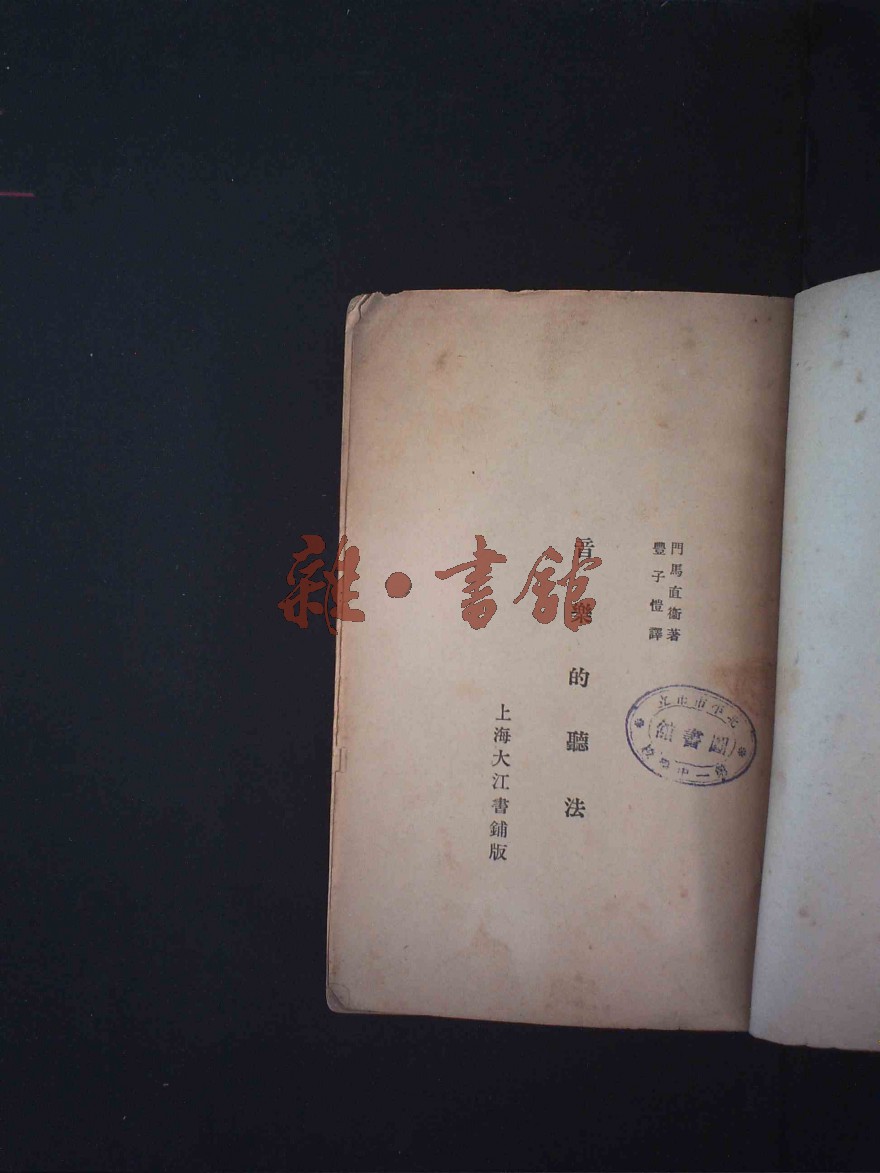 門馬直衞著
豐子愷譯
音樂的聽法
上海大江書鋪版
雜·書館
圖書館